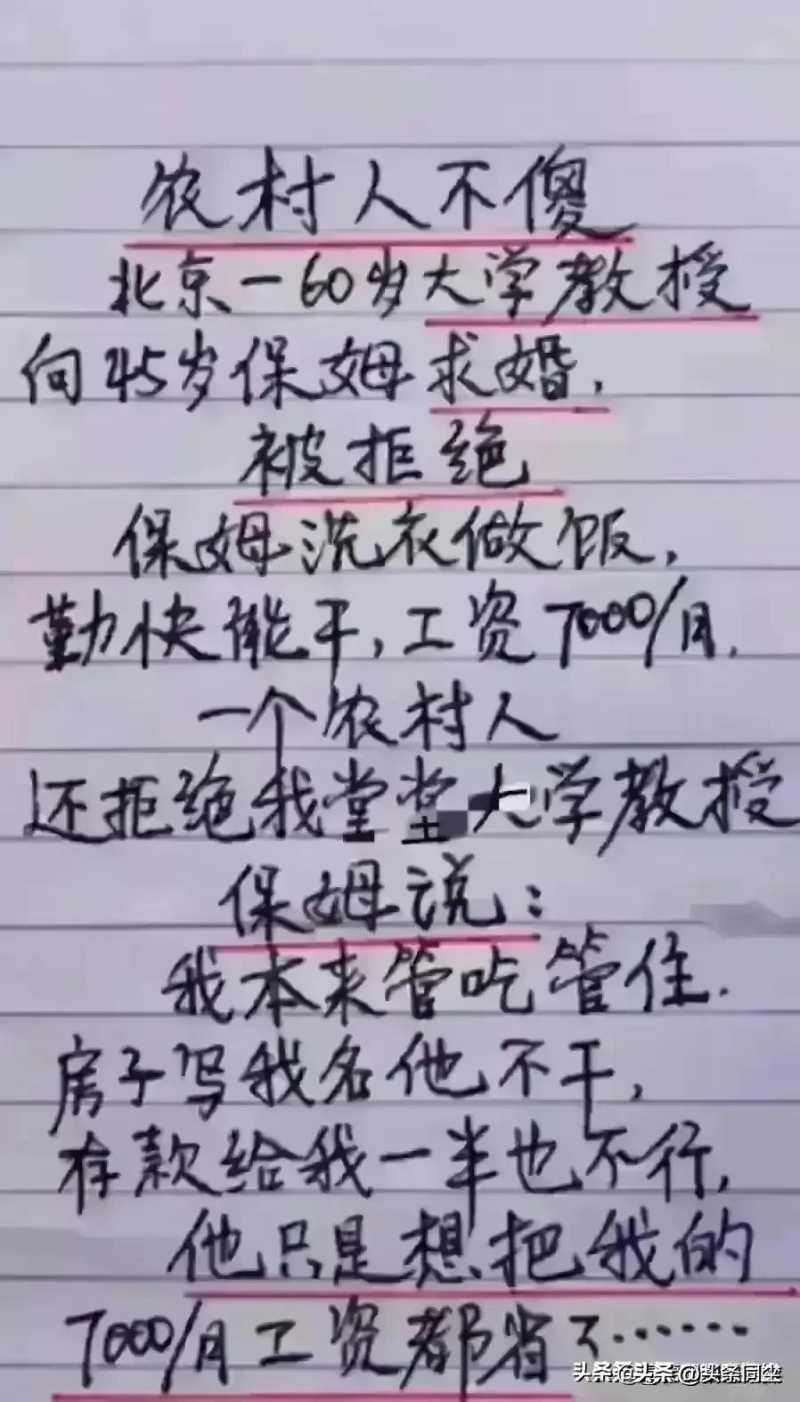 农村人不傻
北京一60岁大学教授
向45岁保姆求婚,
被拒绝
保姆洗衣做饭,
勤快能干,工资7000/月.
一个农村人
还拒绝我堂堂大学教授
保姆说:
我本来管吃管住.
房子写我名他不干,
存款给我一半也不行,
他只是想把我的
7000/月工资都省了……